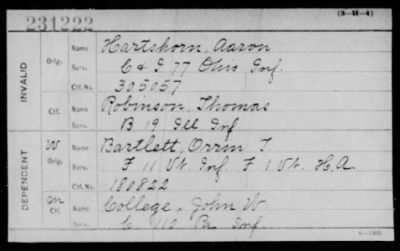 (3-11-4)
231222
INVALID
Orig.
Name Hartshorn, Aaron
Serv. C & I 77 Ohio Inf.
Ctf. No. 305057
Ctf.
Name Robinson, Thomas
Serv. B 19 Ill Inf
DEPENDENT
W
Orig.
Name Bartlett, Orrin T.
Serv. F 11 Vt. Inf. F 1 Vt. H.A.
Ctf. No. 180822
M
Ctf.
Name College, John W.
Serv. C 110 Pa Inf.